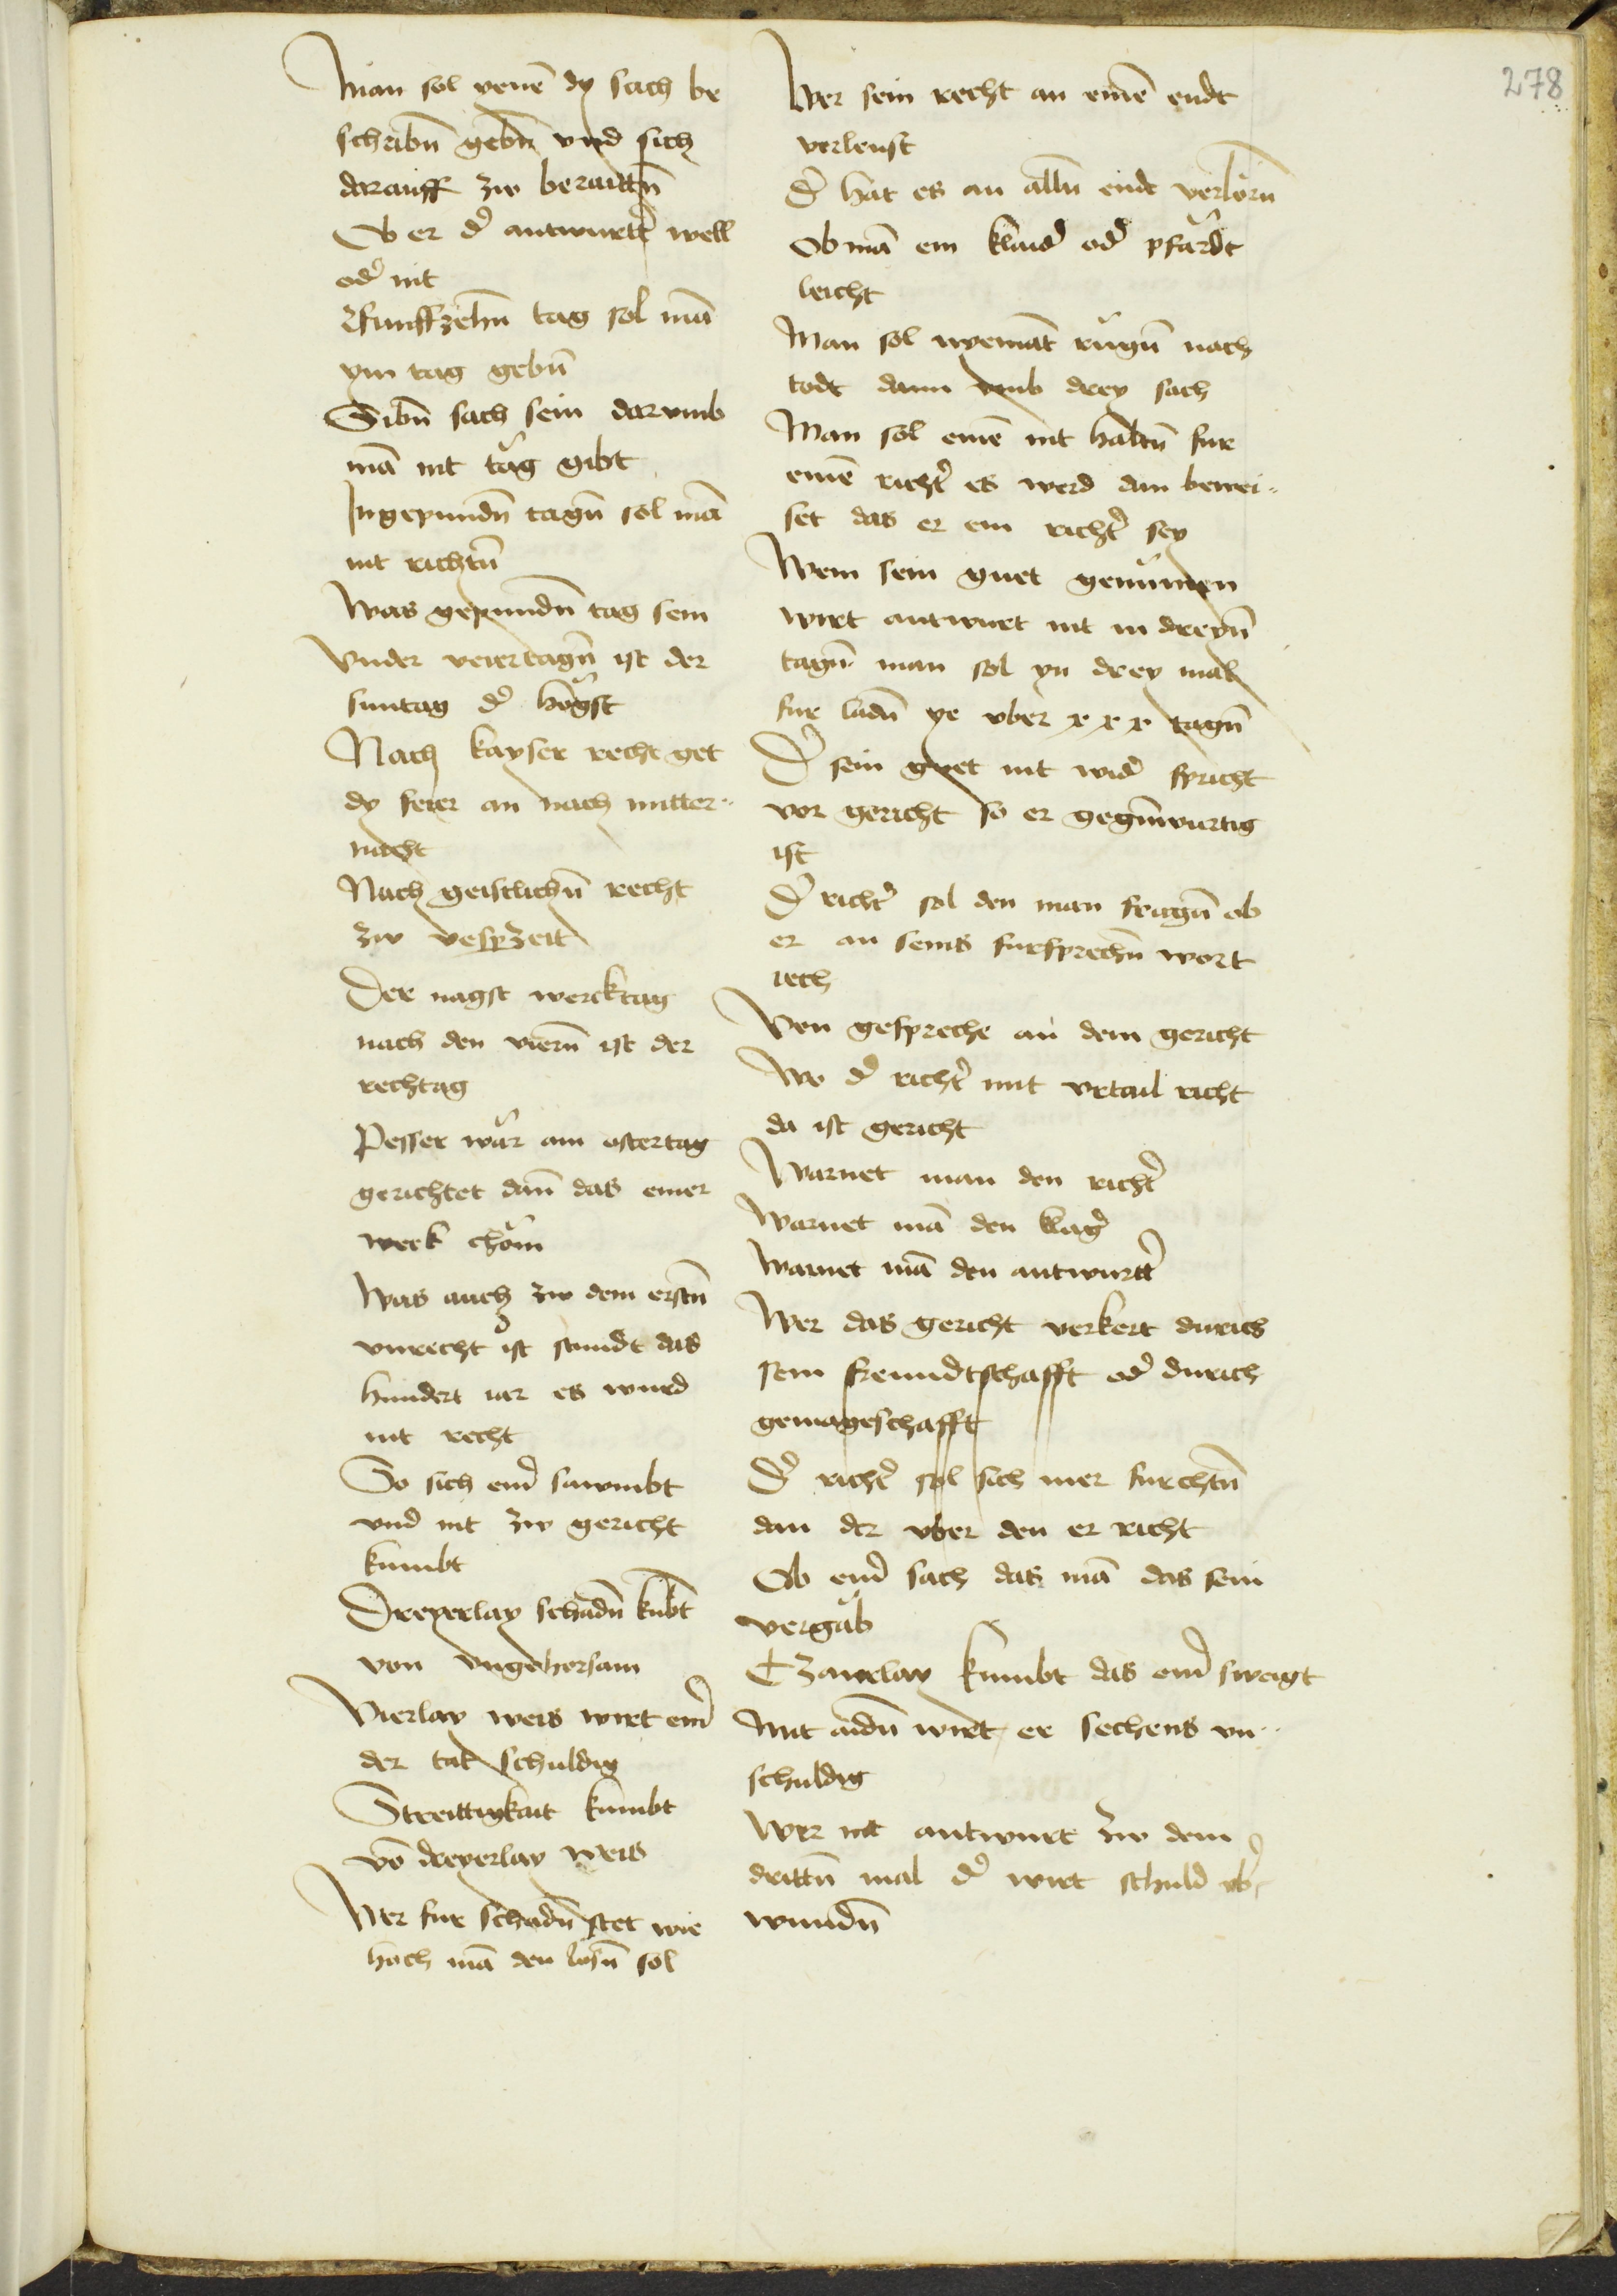 278
Man sol yenē dy sach be
schribn̄ gebn̄ vnd sich
darauff zw beraittn̄
Ob er d' antwurtt' well
od' nit
Funffzehn̄ tag sol mā
ym tag gebn̄
Sibn̄ sach sein darvmb
mā nit tåg gibt
In gepundn̄ tagn̄ sol mā
nit richtn̄
Was gepundn̄ tag sein
Vnder veiertagn̄ ist der
suntag d' högst
Nach kayser recht get
dy feier an nach mitter-
nacht
Nach geistlichn̄ recht
zw vespzeit
Der nagst wercktag
nach den viern̄ ist der
rechtag
Pesser wår am ostertag
gerichtet dan̄ das einer
werk chöm
Was auch zw dem erstn̄
vnrecht ist stundt das
hundert iar es wurd
nit recht
So sich ein' sawmbt
vnd nit zw gericht
kumbt
Dreyerlay schadn̄ kūbt
von vngehorsam
Vierlay weis wirt ein'
der tat schuldig
Streittigkait kumbt
vō dreyerlay weis
Wer fur schadn̄ stet wie
hoch mā den losn̄ sol
Wer sein recht an einē endt
verleust
D' hat es an alln̄ endt verlorn̄
Ob mā ein klaid od' pfårdt
leicht
Man sol nyemāt rügn̄ nach
todt dann vmb drey sach
Man sol einē nit haltn̄ fur
einē richt' es werd dan bewei-
set das er ein richt' sey
Wem sein guet genumen
wirt antwurt nit in dreyn̄
tagn̄ man sol yn drey mal
fur ladn̄ ye vber xxx tagn̄
D' sein guet nit wid' spricht
vor gericht so er gegn̄wurtig
ist
D' richt' sol den man fragn̄ ob
er an seins fursprechn̄ wort
iech
Von gespreche an dem gericht
Wo d' richt' mit vrtail richt
da ist gericht
Warnet man den richt'
Warnet mā den klag'
Warnet mā den antwurtt'
Wer das gericht verkert durich
sein freundtschafft od' durich
gemageschafft
D' richt' sol sich mer furchtn̄
dan der vber den er richt
Ob ein' sach das mā das sein
vergåb
Czwaielay kumbt das ein' sweigt
Mit aidn̄ wirt er sechens vn-
schuldig
Wer nit antwurt zw dem
drittn̄ mal d' wirt schuld vb'
wundn̄